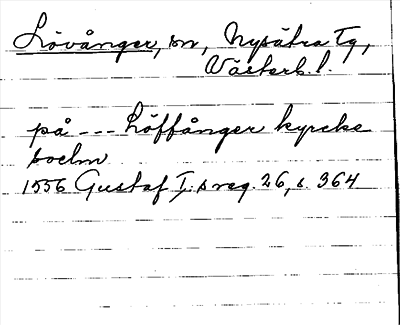 Lövånger, sn, Nysätra Tg,
Västerb. l.
på --- Löffånger kyrcke
soelm
1556 Gustaf I:s reg. 26, s. 364